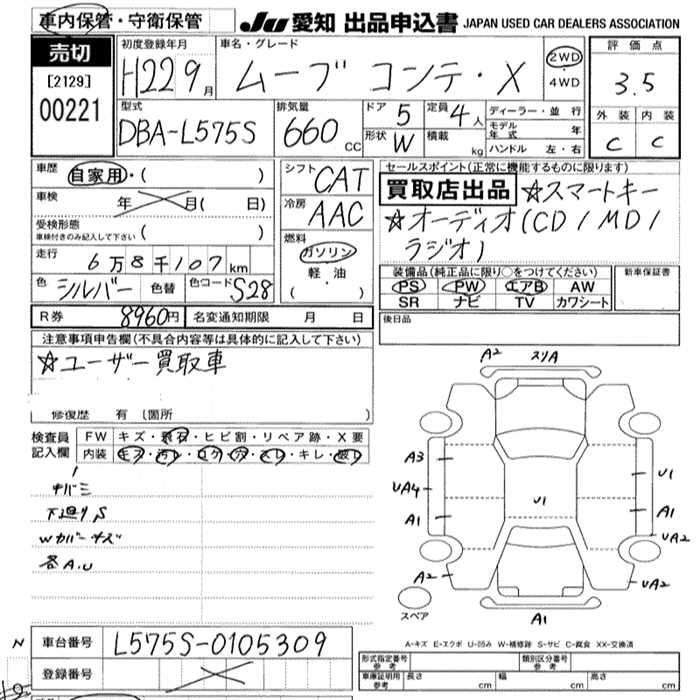 車内保管・守衛保管 JU 愛知 出品申込書 JAPAN USED CAR DEALERS ASSOCIATION
売切 初度登録年月 車名・グレード 2WD 評価点
[2129] H22 9月 ムーブ コンテ・X ・4WD 3.5
00221 型式 排気量 ドア 5 定員 4人 ディーラー・並行 外装 内装
DBA-L575S 660cc 形状 W 積載 kg モデル年式 年 C C
ハンドル 左・右
車歴 自家用・( ) シフト CAT セールスポイント(正常に機能するものに限ります)
車検 年 月( 日) 冷房 AAC 買取店出品 ☆スマートキー
受検形態 ( ) ☆オーディオ(CD/MD/
車検付きのみ記入して下さい 燃料 ラジオ)
走行 6万8千107km ガソリン 装備品(純正品に限り○をつけてください) 新車保証書
色 シルバー 色替 色コード S28 軽・油 PS PW エアB AW
( ) SR ナビ TV カワシート
R券 8960円 名変通知期限 月 日 後日品
注意事項申告欄(不具合内容等は具体的に記入して下さい)
☆ユーザー買取車
修復歴 有 〔箇所 〕
検査員 FW キズ・飛石・ヒビ割・リペア跡・X要
記入欄 内装 キズ・汚レ・コゲ・穴・スレ・キレ・破レ
下廻りS
Wカバーキズ
各A.U
A2 スリA
A3 U1
UA4 U1
A1 A1
UA2
A2 UA2
スペア A1
A-キズ E-エクボ U-凹み W-補修跡 S-サビ C-腐食 XX-交換済
N 車台番号 L575S-0105309
登録番号
形式指定番号 参考 類別区分番号 参考
車庫証明用 参考 長さ cm 幅 cm 高さ cm